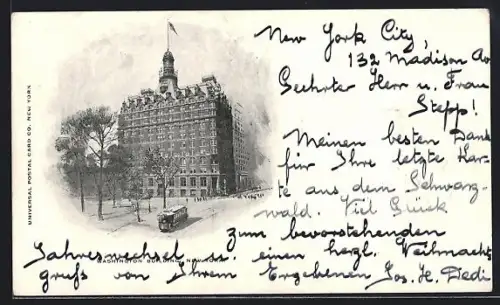 New York City,
132 Madison Av
Geehrter Herr u. Frau
Stepp!
Meinen besten Dank
für Ihre letzte Kar-
te aus dem Schwarz-
wald. Viel Glück
zum bevorstehenden
Jahreswechsel u. einen herzl. Weihnachts
gruß von Ihrem Ergebenen Jos. H. Dedi
WASHINGTON BUILDING, NEW YORK
UNIVERSAL POSTAL CARD CO. NEW YORK